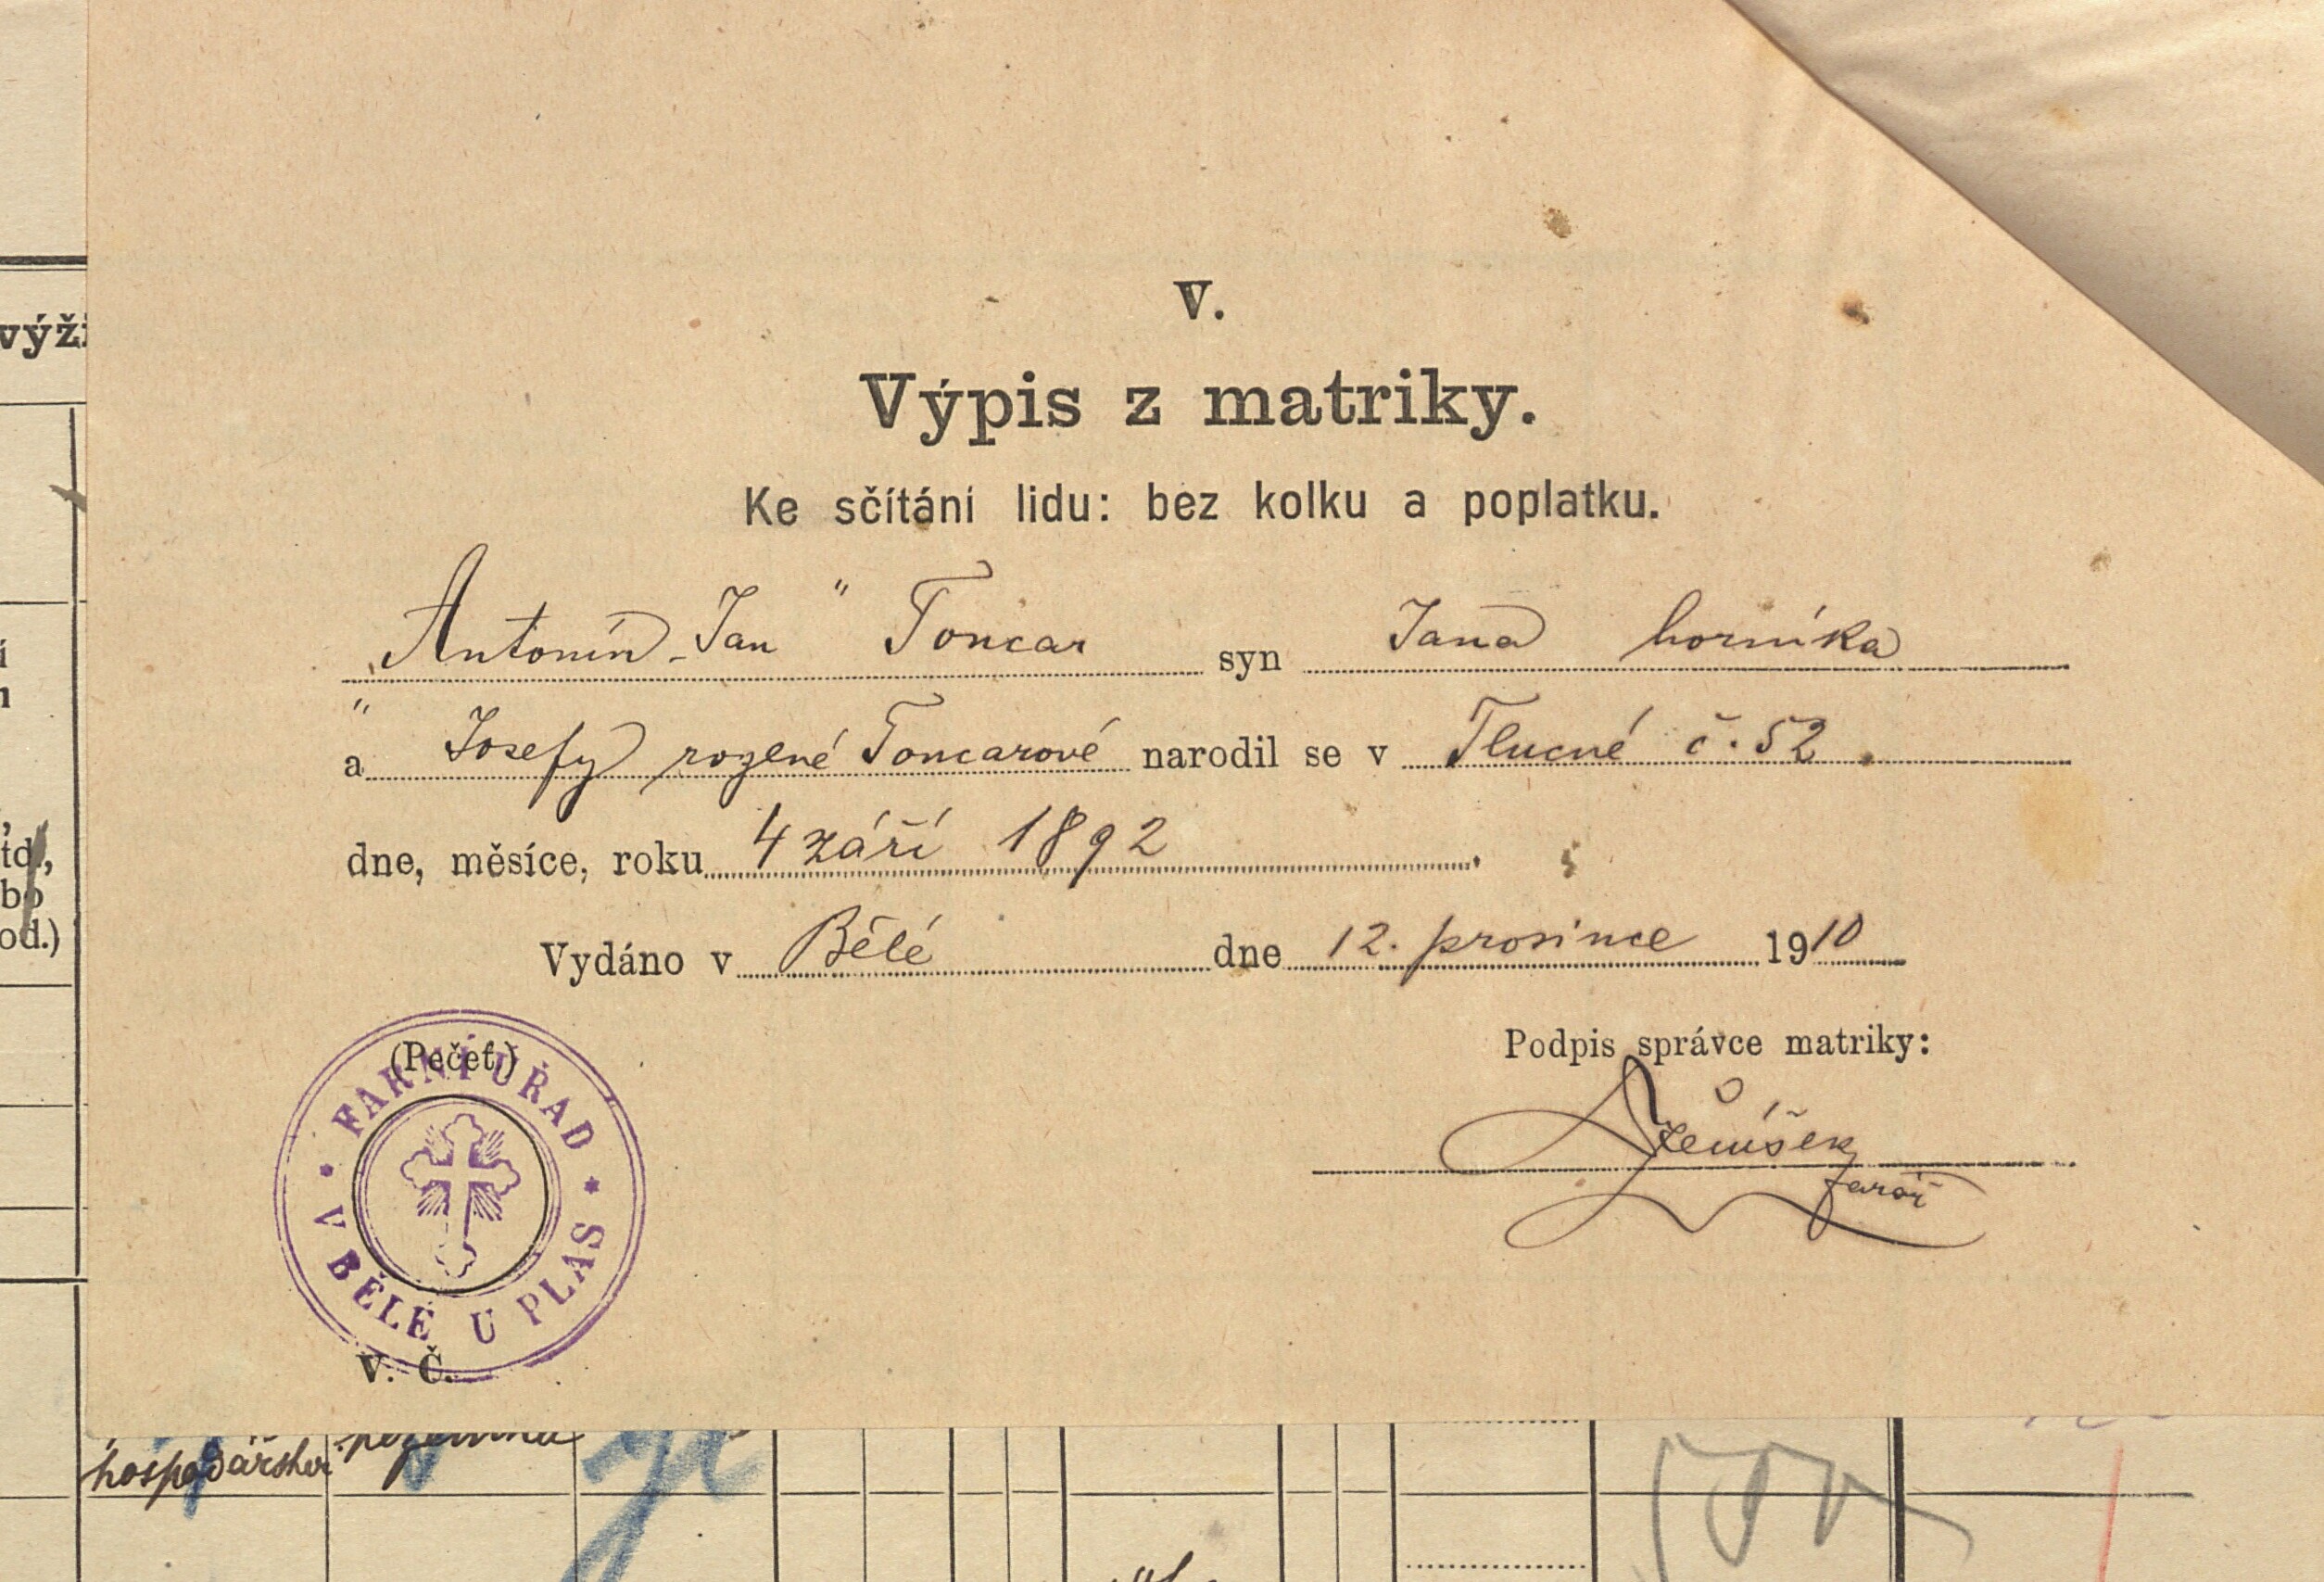 výži
td.,
bo
od.)
V.
Výpis z matriky.
Ke sčítání lidu: bez kolku a poplatku.
„Antonín-Jan" Toncar syn Jana horníka
a Josefy rozené Toncarové narodil se v Tlucné č. 52.
dne, měsíce, roku 4 září 1892.
Vydáno v Bělé dne 12. prosince 1910
(Pečeť.)
Podpis správce matriky:
farář
FARNÍ ÚŘAD
V BĚLÉ U PLAS
V. Č.
hospodářsker